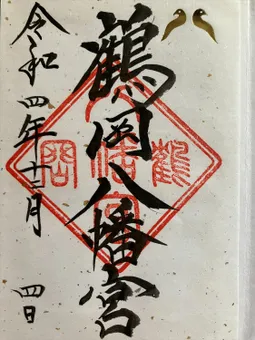 鶴岡八幡宮
令和四年十二月四日
鶴
八幡宮
岡